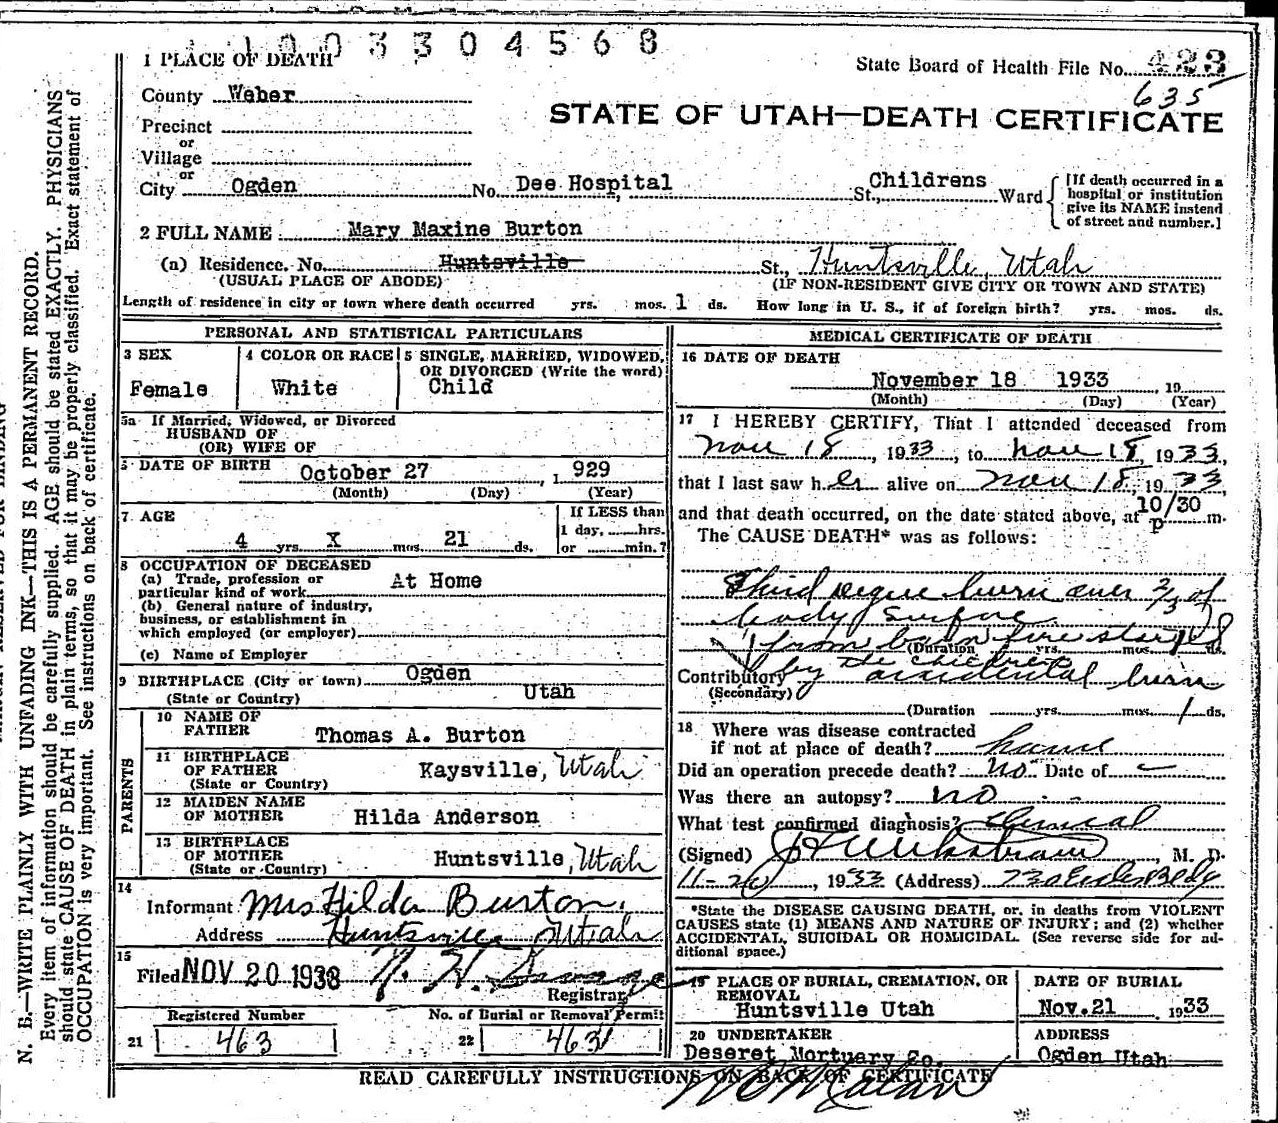 1003304568
1 PLACE OF DEATH
State Board of Health File No. 423
635
County Weber
STATE OF UTAH—DEATH CERTIFICATE
Precinct
or
Village
or
City Ogden No. Dee Hospital St., Childrens Ward
[If death occurred in a hospital or institution give its NAME instead of street and number.]
2 FULL NAME Mary Maxine Burton
(a) Residence. No. Huntsville St., Huntsville, Utah
(USUAL PLACE OF ABODE) (IF NON-RESIDENT GIVE CITY OR TOWN AND STATE)
Length of residence in city or town where death occurred yrs. mos. 1 ds. How long in U. S., if of foreign birth? yrs. mos. ds.
PERSONAL AND STATISTICAL PARTICULARS
3 SEX
Female
4 COLOR OR RACE
White
5 SINGLE, MARRIED, WIDOWED,
OR DIVORCED (Write the word)
Child
5a If Married, Widowed, or Divorced
HUSBAND OF
(OR) WIFE OF
DATE OF BIRTH October 27, 1929
(Month) (Day) (Year)
7 AGE
4 yrs. X mos. 21 ds.
If LESS than
1 day, hrs.
or min.?
8 OCCUPATION OF DECEASED
(a) Trade, profession or
particular kind of work At Home
(b) General nature of industry,
business, or establishment in
which employed (or employer)
(c) Name of Employer
9 BIRTHPLACE (City or town) Ogden
(State or Country) Utah
PARENTS
10 NAME OF
FATHER Thomas A. Burton
11 BIRTHPLACE
OF FATHER Kaysville, Utah
(State or Country)
12 MAIDEN NAME
OF MOTHER Hilda Anderson
13 BIRTHPLACE
OF MOTHER Huntsville, Utah
(State or Country)
14
Informant Mrs Hilda Burton.
Address Huntsville Utah
15
Filed NOV 20 1933
Registrar
Registered Number No. of Burial or Removal Permit
21 463 22 463
MEDICAL CERTIFICATE OF DEATH
16 DATE OF DEATH
November 18 1933, 19
(Month) (Day) (Year)
17 I HEREBY CERTIFY, That I attended deceased from
Nov 18, 1933, to Nov 18, 1933,
that I last saw her alive on Nov 18, 1933,
and that death occurred, on the date stated above, at 10/30 p m.
The CAUSE DEATH* was as follows:
Third Degree burn over 2/3 of
body Surface.
from barn fire started
(Duration yrs. mos. ds.
by the children
Contributory accidental burn
(Secondary)
(Duration yrs. mos. 1 ds.
18 Where was disease contracted
if not at place of death? home
Did an operation precede death? No Date of —
Was there an autopsy? no
What test confirmed diagnosis? Clinical
(Signed) , M. D.
11-20, 1933 (Address) Eccles Bldg
*State the DISEASE CAUSING DEATH, or, in deaths from VIOLENT
CAUSES state (1) MEANS AND NATURE OF INJURY; and (2) whether
ACCIDENTAL, SUICIDAL OR HOMICIDAL. (See reverse side for ad-
ditional space.)
19 PLACE OF BURIAL, CREMATION, OR
REMOVAL
Huntsville Utah
DATE OF BURIAL
Nov.21 1933
20 UNDERTAKER
Deseret Mortuary Co.
ADDRESS
Ogden Utah
READ CAREFULLY INSTRUCTIONS ON BACK OF CERTIFICATE
N. B.—WRITE PLAINLY WITH UNFADING INK—THIS IS A PERMANENT RECORD.
Every item of information should be carefully supplied. AGE should be stated EXACTLY. PHYSICIANS
should state CAUSE OF DEATH in plain terms, so that it may be properly classified. Exact statement of
OCCUPATION is very important. See instructions on back of certificate.